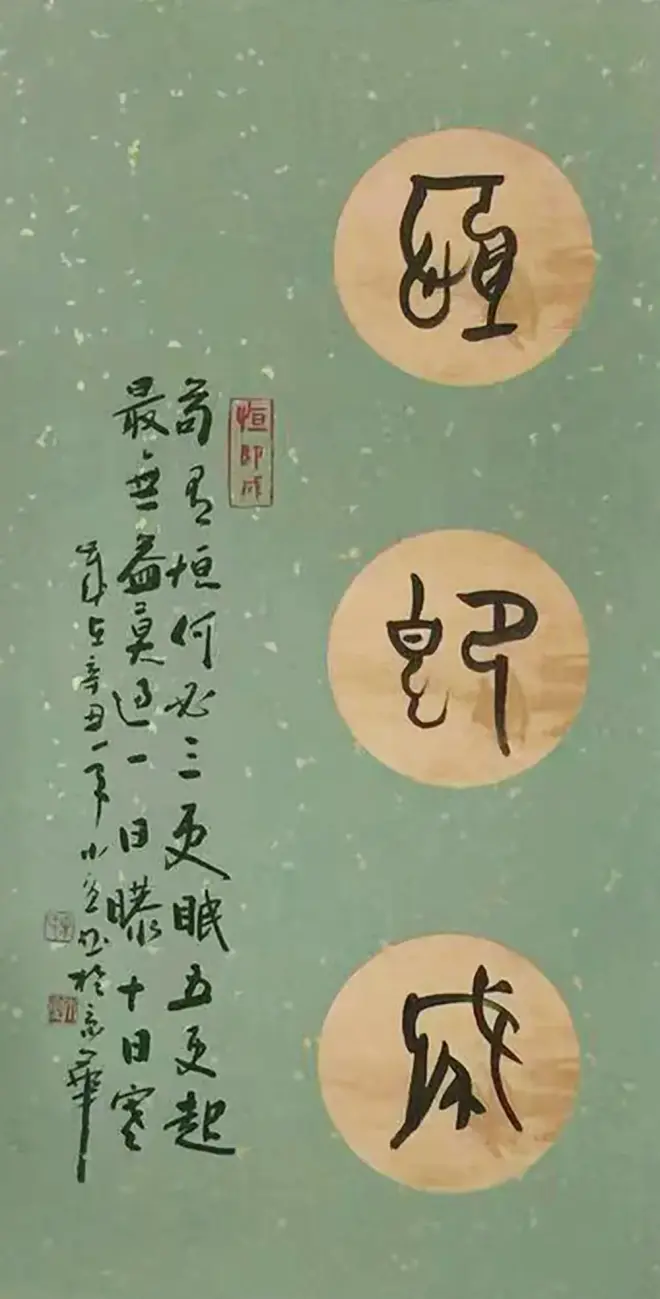 恒
即
成
恒即成
苟有恒何必三更眠五更起
最無益莫過一日曝十日寒
歲在辛丑年小於京華